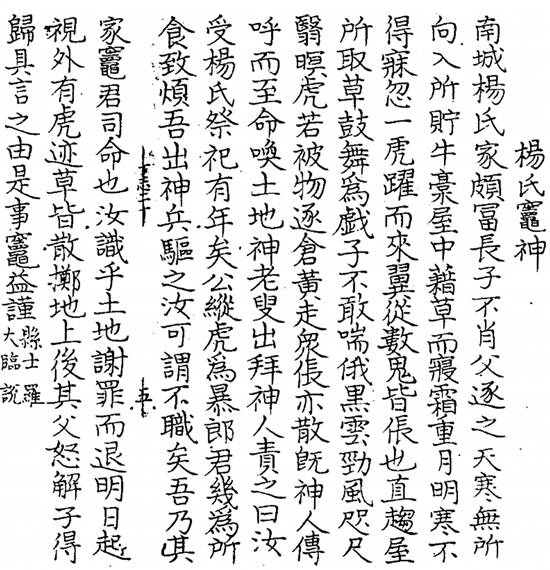 楊氏竈神
南城楊氏家頗冨長子不肖父逐之天寒無所
向入所貯牛稾屋中藉草而寢霜重月明寒不
得寐忽一虎躍而來翼從數鬼皆倀也直趨屋
所取草鼓舞爲戲子不敢喘俄黑雲勁風咫尺
翳暝虎若被物逐倉黃走衆倀亦散旣神人傳
呼而至命喚土地神老叟出拜神人責之曰汝
受楊氏祭祀有年矣公縱虎爲暴郎君幾爲所
食致煩吾出神兵驅之汝可謂不職矣吾乃其
家竈君司命也汝識乎土地謝罪而退明日起
視外有虎迹草皆散擲地上後其父怒解子得
歸具言之由是事竈益謹
縣士羅
大臨說